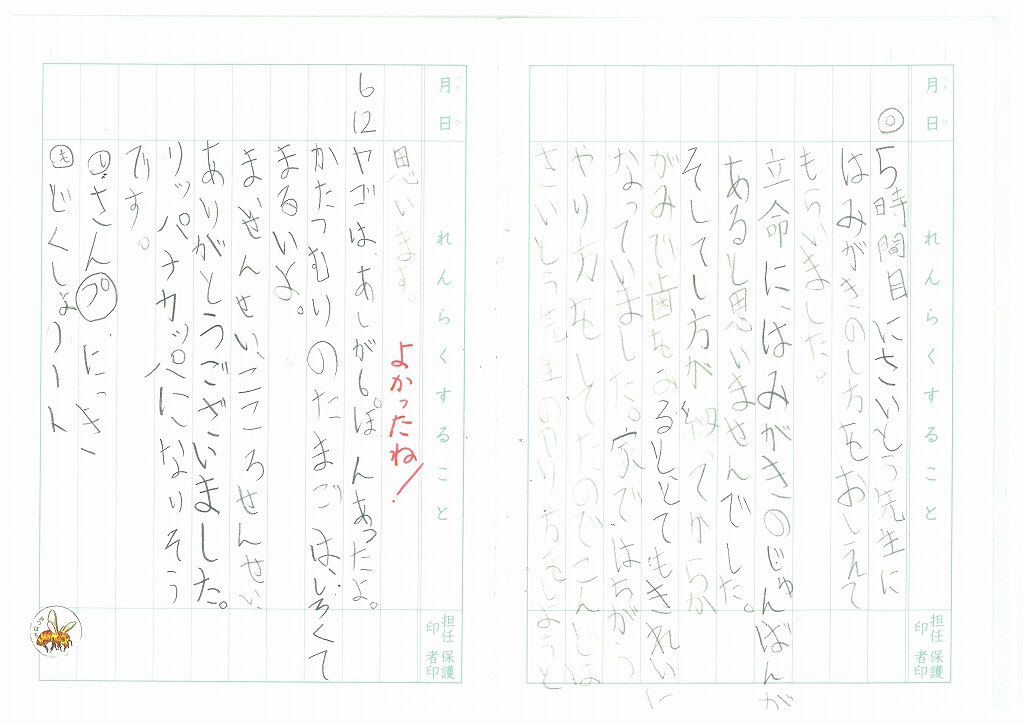 月日 れんらくすること 担任印 保護者印
◎ 5時間目にさいとう先生に
はみがきのし方をおしえて
もらいました。
立命にはみがきのじゅんばんが
あると思いませんでした。
そしてし方が
がみで歯を
なっていました。家ではちがう
やり方をしてたのでこんどは
さいとう先生のやり方をしようと
月日 れんらくすること 担任印 保護者印
思います。
よかったね!
6 12 ヤゴは、あしが6ぽんあったよ。
かたつむりのたまごは、しろくて
まるいよ。
まえせんせい、こころせんせい、
ありがとうございました。
リッパナカッパになりそう
です。
さんプ にっき
も どくしょノート